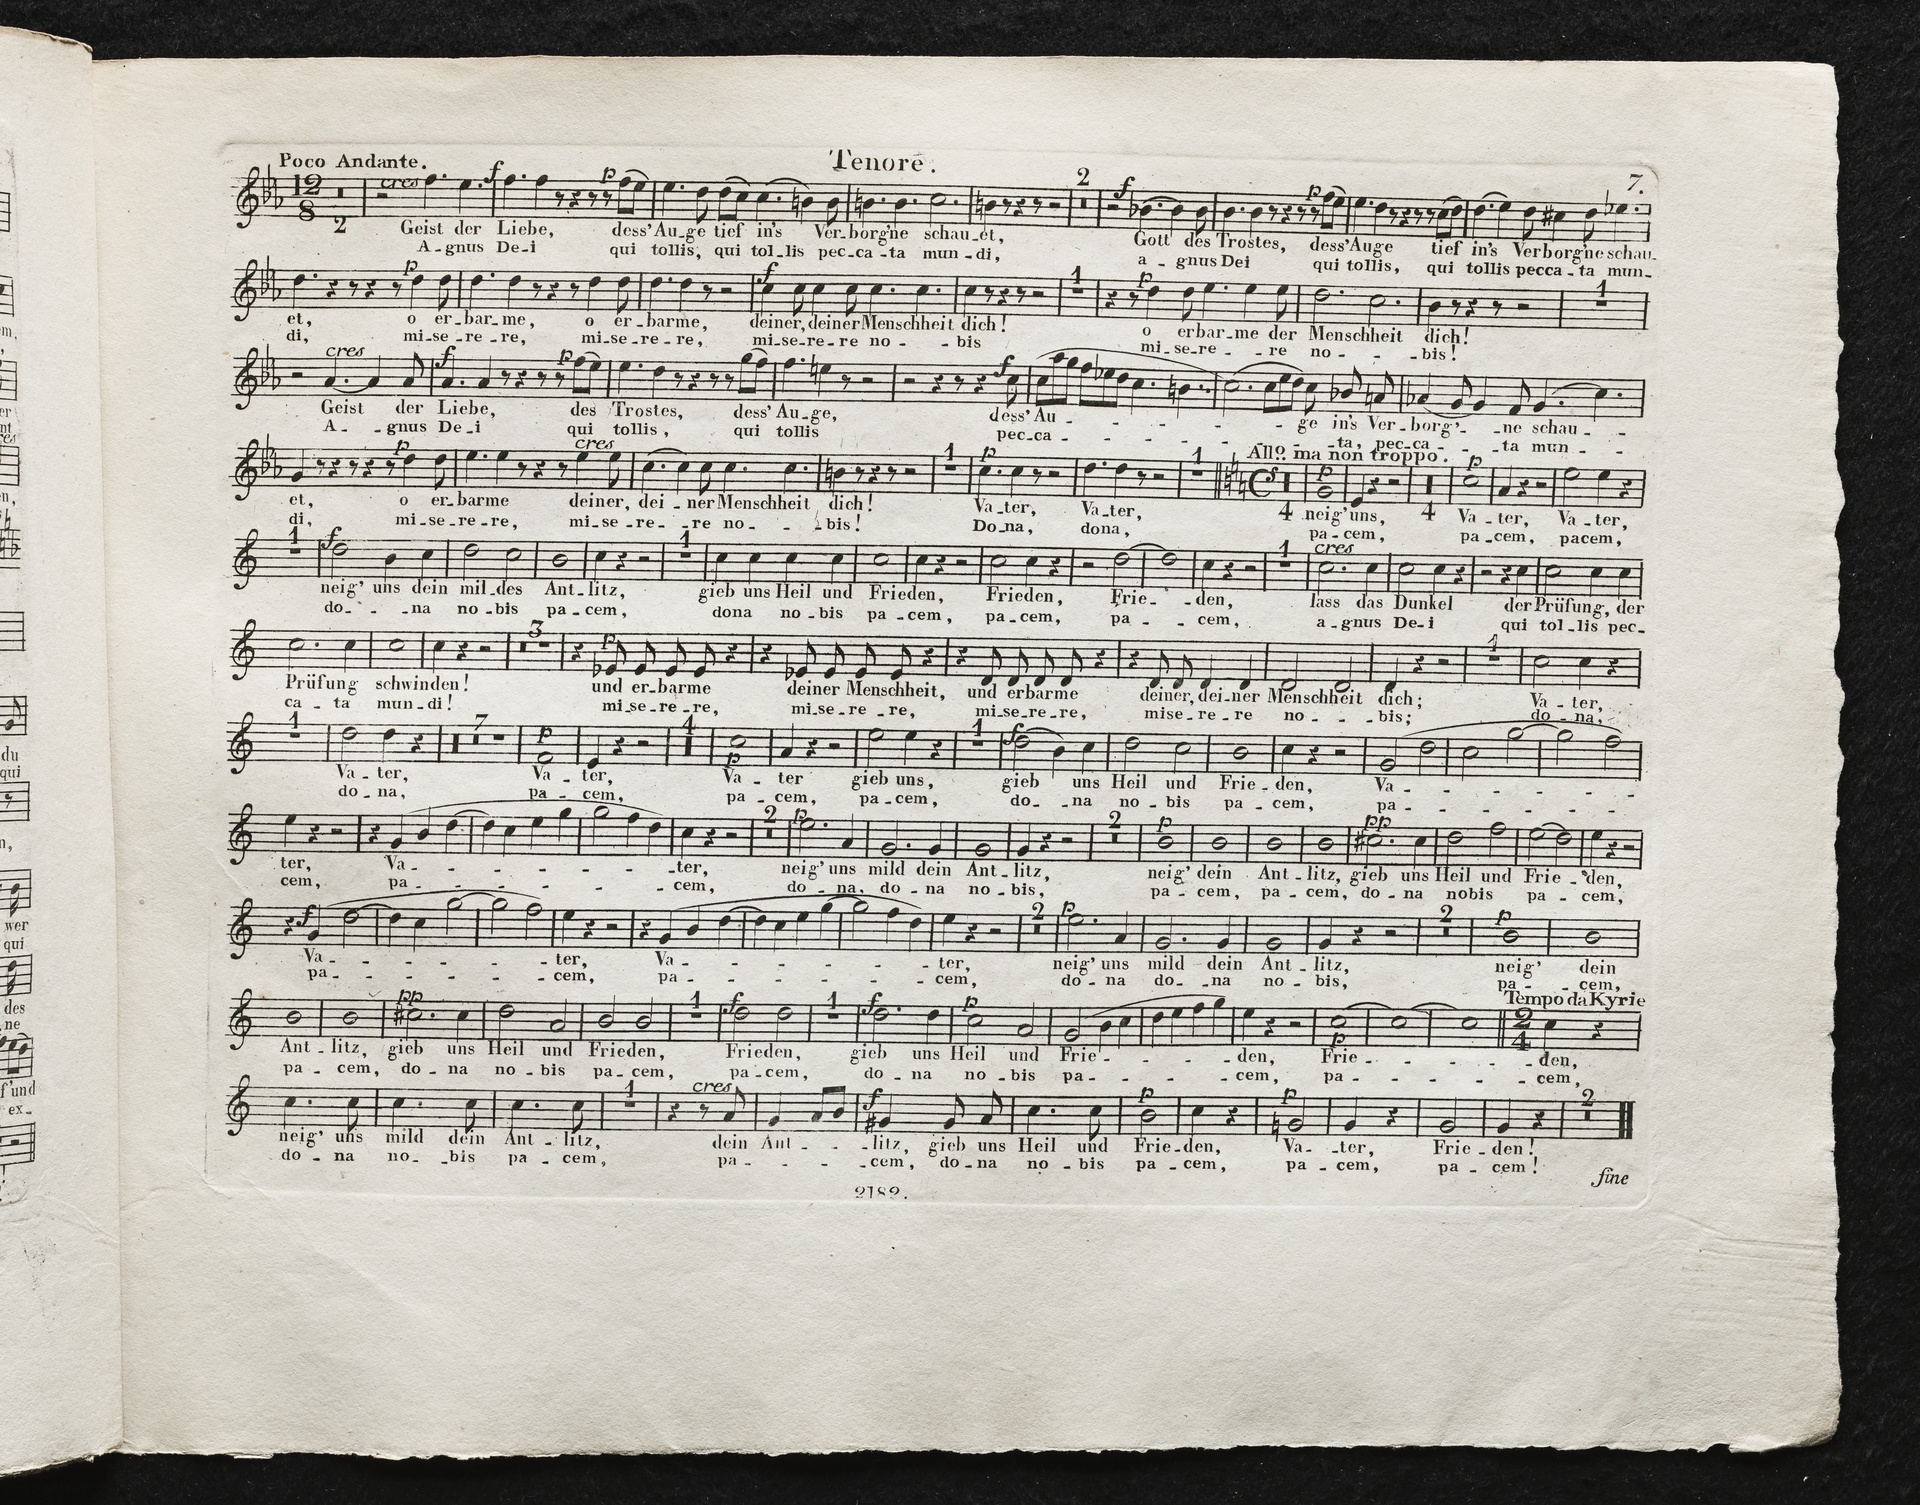 Poco Andante. Tenore.
7.
12 8 2 cres f p 2 f p
Geist der Liebe, dess' Au-ge tief in's Ver-borg'ne schau-et, Gott des Trostes, dess' Auge tief in's Verborg'ne schau-
A-gnus De-i qui tollis, qui tol-lis pec-ca-ta mun-di, a-gnus Dei qui tollis, qui tollis pecca-ta mun-
p f 1 p 1
et, o er-bar-me, o er-barme, deiner, deiner Menschheit dich! o erbar-me der Menschheit dich!
di, mi-se-re-re, mi-se-re-re, mi-se-re-re no--bis mi-se-re--re no---bis!
cres f p f
Geist der Liebe, des Trostes, dess' Au-ge, dess' Au--------ge in's Ver-borg'--ne schau--
A--gnus De-i qui tollis, qui tollis pec-ca--------ta, pec-ca---ta mun--
p cres 1 p 1 Allo. ma non troppo. p p
et, o er-barme deiner, dei-ner Menschheit dich! Va-ter, Va-ter, 4 neig' uns, 4 Va-ter, Va-ter,
di, mi-se-re-re, mi-se-re--re no---bis! Do-na, dona, pa-cem, pa-cem, pacem,
1 f 1 1 cres
neig' uns dein mil-des Ant-litz, gieb uns Heil und Frieden, Frieden, Frie--den, lass das Dunkel der Prüfung, der
do---na no-bis pa-cem, dona no-bis pa-cem, pa-cem, pa--cem, a-gnus De-i qui tol-lis pec-
3 p 1
Prüfung schwinden! und er-barme deiner Menschheit, und erbarme deiner, dei-ner Menschheit dich; Va-ter,
ca-ta mun-di! mi-se-re-re, mi-se-re-re, mi-se-re-re, mise-re-re no---bis; do-na,
1 7 p 4 p 1 f
Va-ter, Va-ter, Va-ter gieb uns, gieb uns Heil und Frie-den, Va-------
do-na, pa-cem, pa-cem, pa-cem, do--na no-bis pa-cem, pa-------
2 p 2 p pp
ter, Va--------ter, neig' uns mild dein Ant-litz, neig' dein Ant-litz, gieb uns Heil und Frie-den,
cem, pa--------cem, do-na, do-na no-bis, pa-cem, pa-cem, do-na nobis pa-cem,
f 2 p 2 p
Va-------ter, Va--------ter, neig' uns mild dein Ant-litz, neig' dein
pa-------cem, pa--------cem, do-na do-na no-bis, pa--cem,
pp 1 f 1 f p p Tempo da Kyrie
Ant-litz, gieb uns Heil und Frieden, Frieden, gieb uns Heil und Frie'-----den, Frie-------den,
pa-cem, do-na no-bis pa-cem, pa-cem, do-na no-bis pa------cem, pa-------cem,
2 4
1 cres f p p 2
neig' uns mild dein Ant-litz, dein Ant---litz, gieb uns Heil und Frie-den, Va-ter, Frie-den!
do-na no-bis pa-cem, pa----cem, do-na no-bis pa-cem, pa-cem, pa-cem!
fine
2182.
em,
er
nt
en,
du
qui
n,
wer
qui
des
ne
f' und
ex-